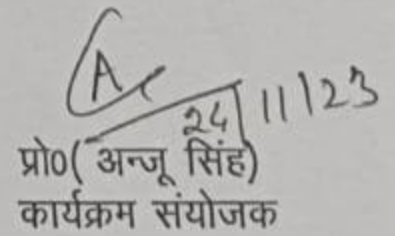 24/11/23
प्रो०( अन्जू सिंह)
कार्यक्रम संयोजक